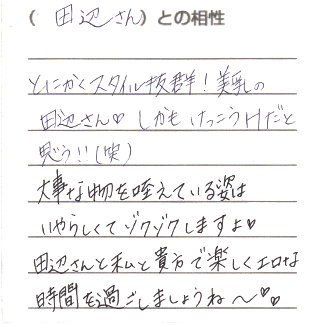 ( 田辺さん ) との相性
とにかくスタイル抜群！美乳の
田辺さん♡しかもけっこうHだと
思う!!(笑)
大事な物を咥えている姿は
いやらしくてゾクゾクしますよ♡
田辺さんと私と貴方で楽しくエロな
時間を過ごしましょうね〜♡♡